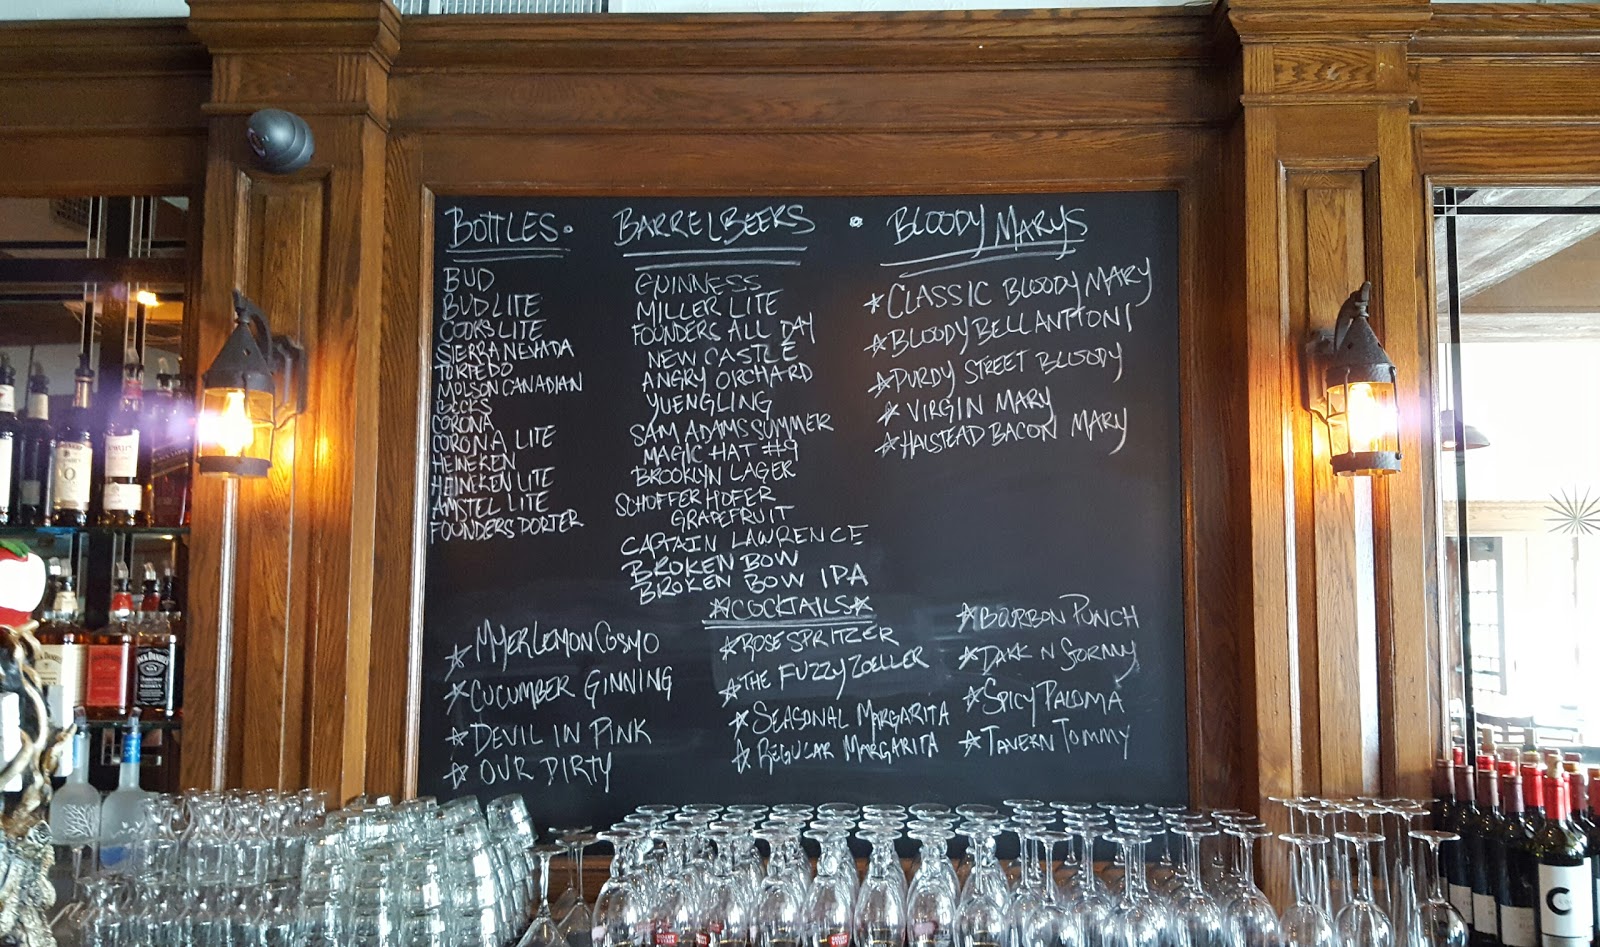 BOTTLES.
BUD
BUD LITE
COORS LITE
SIERRA NEVADA
TORPEDO
MOLSON CANADIAN
BECKS
CORONA
CORONA LITE
HEINEKEN
HEINEKEN LITE
AMSTEL LITE
FOUNDERS PORTER
BARREL BEERS
GUINNESS
MILLER LITE
FOUNDERS ALL DAY
NEW CASTLE
ANGRY ORCHARD
YUENGLING
SAM ADAMS SUMMER
MAGIC HAT #9
BROOKLYN LAGER
SCHOFFERHOFER
GRAPEFRUIT
CAPTAIN LAWRENCE
BROKEN BOW
BROKEN BOW IPA
BLOODY MARYS
CLASSIC BLOODY MARY
BLOODY BELLANTTONI
PURDY STREET BLOODY
VIRGIN MARY
HALSTEAD BACON MARY
COCKTAILS
MYER LEMON COSMO
CUCUMBER GINNING
DEVIL IN PINK
OUR DIRTY
ROSE SPRITZER
THE FUZZY ZOELLER
SEASONAL MARGARITA
REGULAR MARGARITA
BOURBON PUNCH
DARK N STORMY
SPICY PALOMA
TAVERN TOMMY